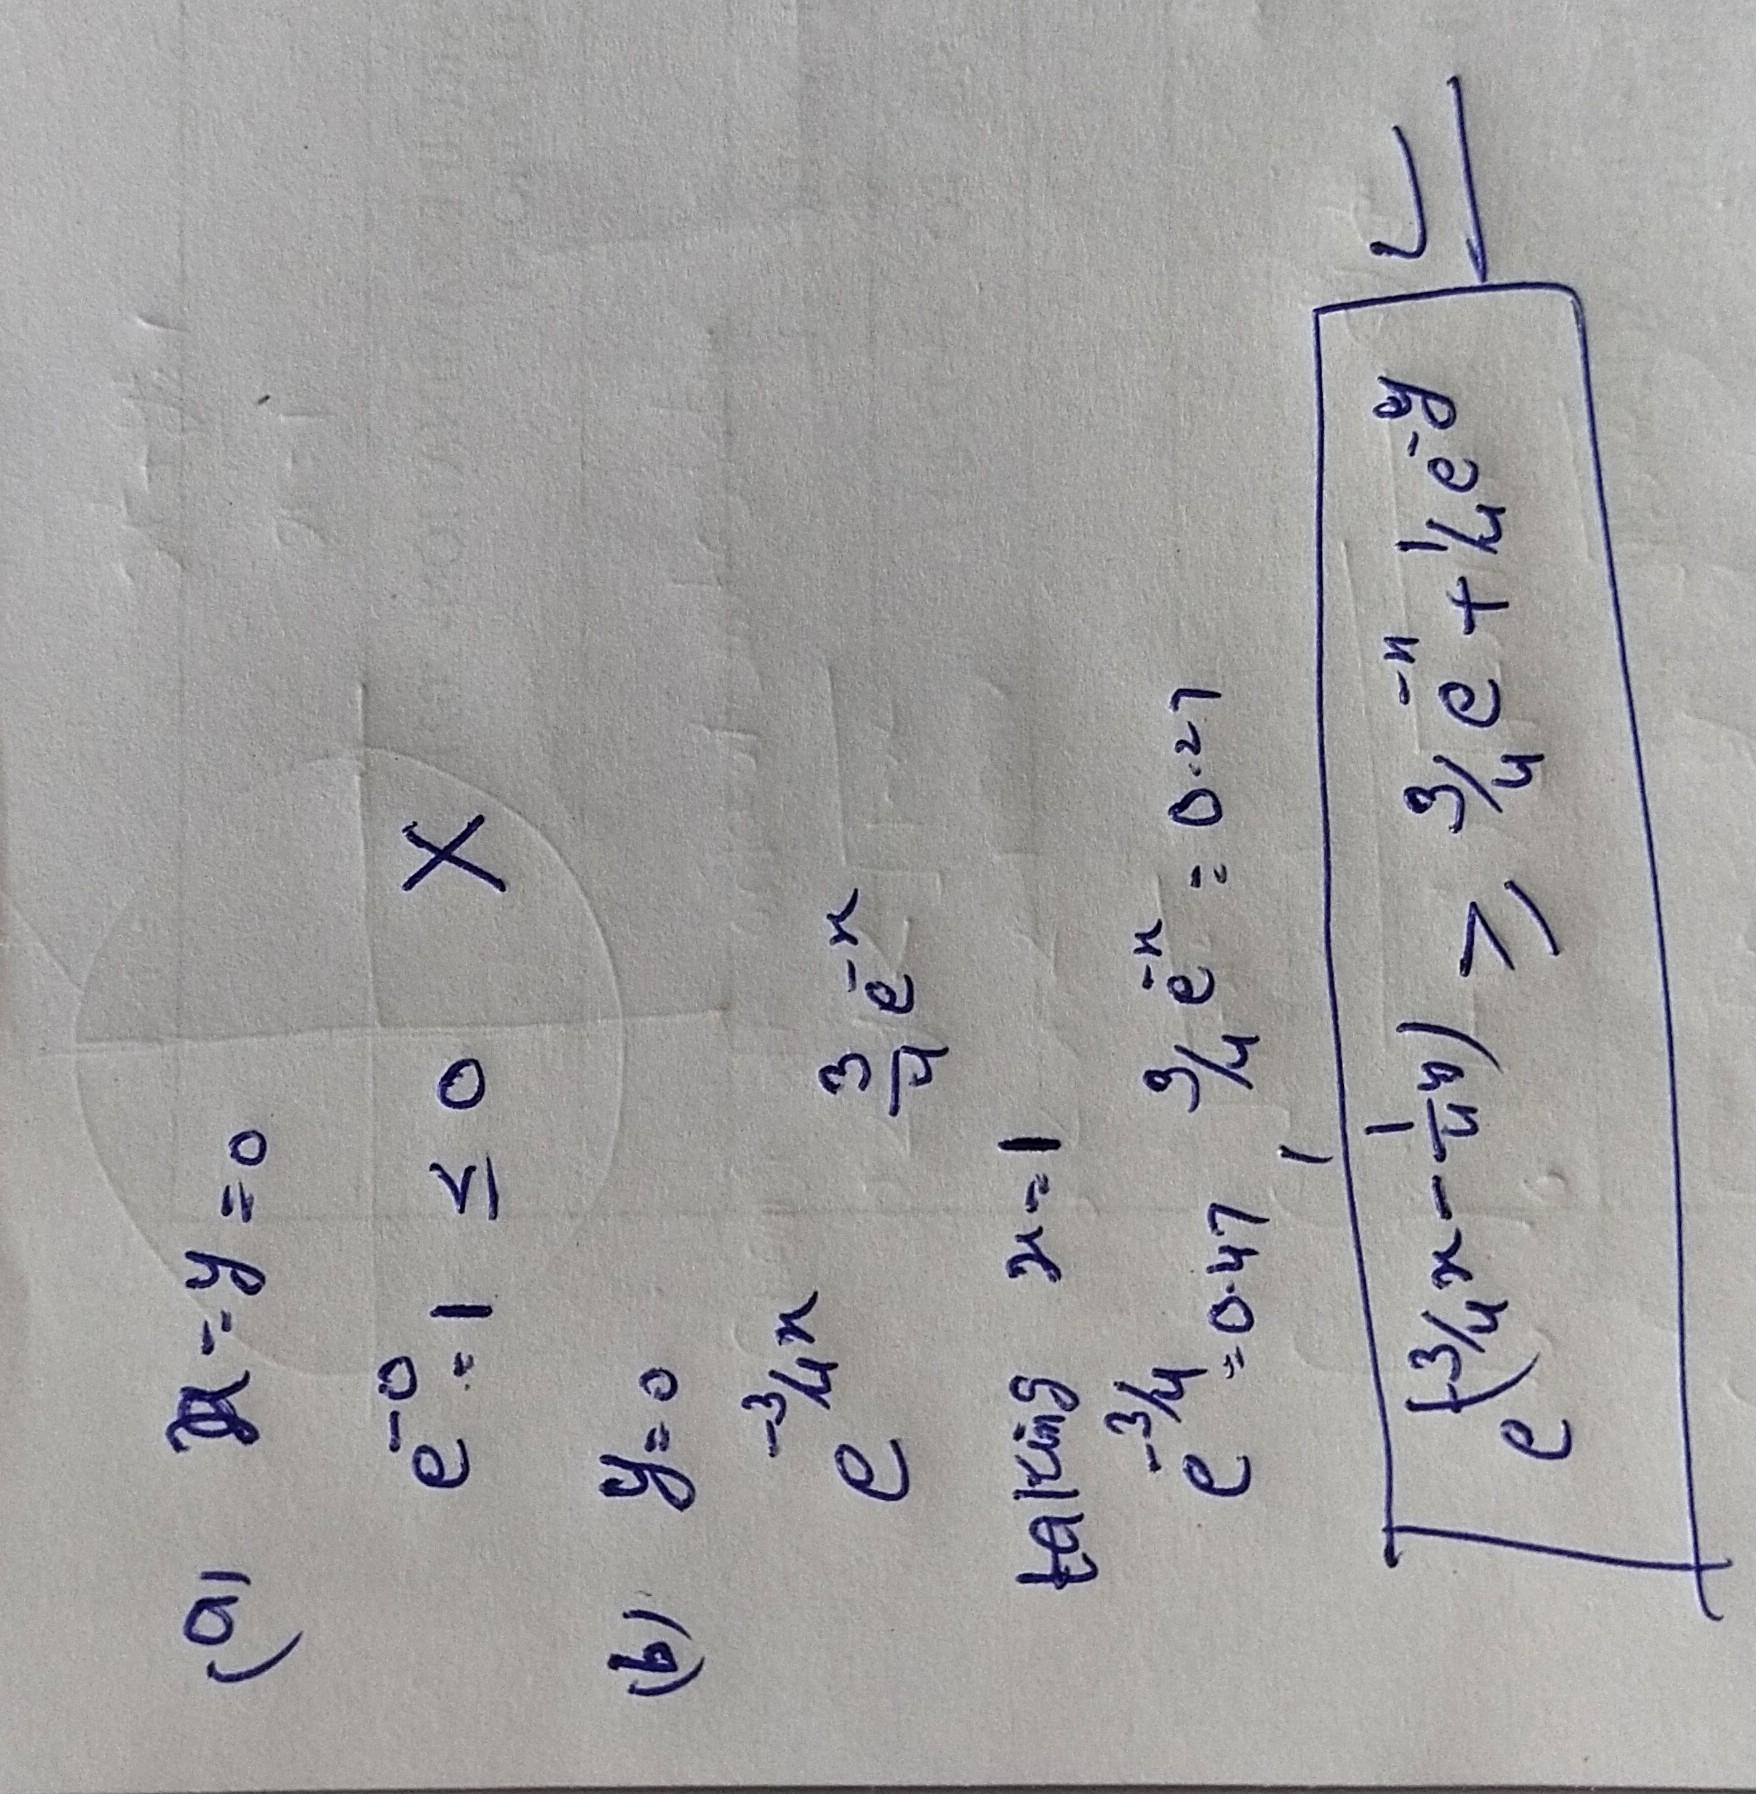 (a) x = y = 0
e^-0 = 1 ≤ 0 X
(b) y = 0
e^-3/4x 3/4 e^-x
taking x = 1
e^-3/4 = 0.47 3/4 e^-x = 0.27
e^(-3/4x - 1/4y) ≥ 3/4 e^-x + 1/4 e^-y